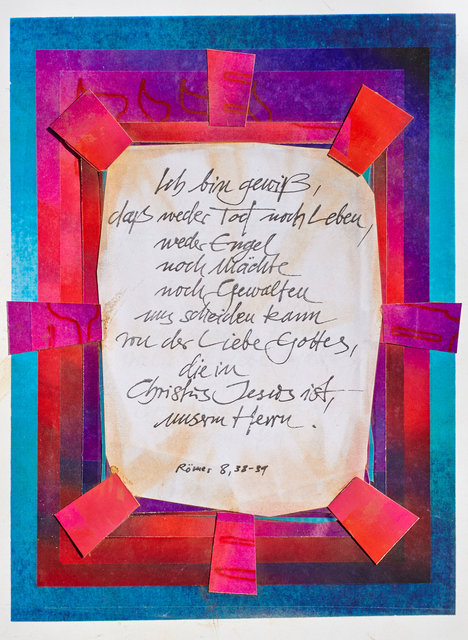 Ich bin gewiß,
daß weder Tod noch Leben,
weder Engel
noch Mächte
noch Gewalten
uns scheiden kann
von der Liebe Gottes,
die in
Christus Jesus ist,
unserm Herrn.
Römer 8, 38-39